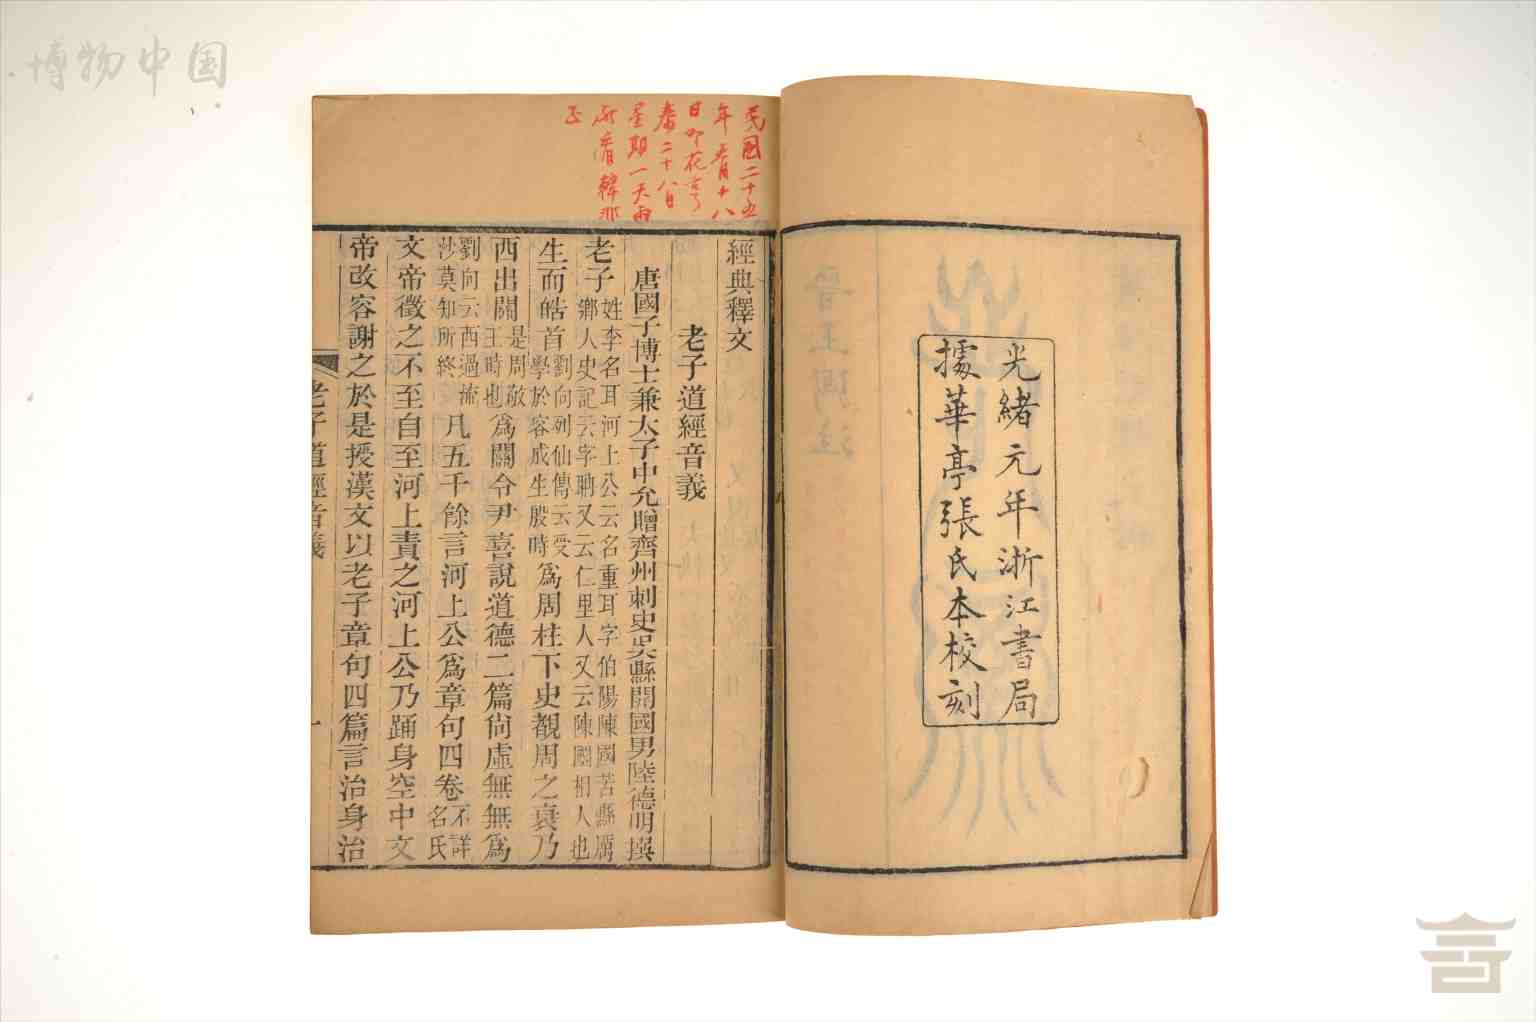 博物中国
光緒元年浙江書局
據華亭張氏本校刻
民國二十五
年
日
二十八日
星期一天雨
經典釋文
老子道經音義
唐國子博士兼太子中允贈齊州刺史吳縣開國男陸德明撰
老子姓李名耳河上公云名重耳字伯陽陳國苦縣厲
鄉人史記云字聃又云仁里人又云陳國相人也
生而皓首劉向列仙傳云受
學於容成生殷時爲周柱下史覩周之衰乃
西出關是周敬
王時也爲關令尹喜說道德二篇尙虛無無爲
劉向云西過流
沙莫知所終凡五千餘言河上公爲章句四卷不詳
名氏
文帝徵之不至自至河上責之河上公乃踊身空中文
帝改容謝之於是授漢文以老子章句四篇言治身治
老子道經音義
一